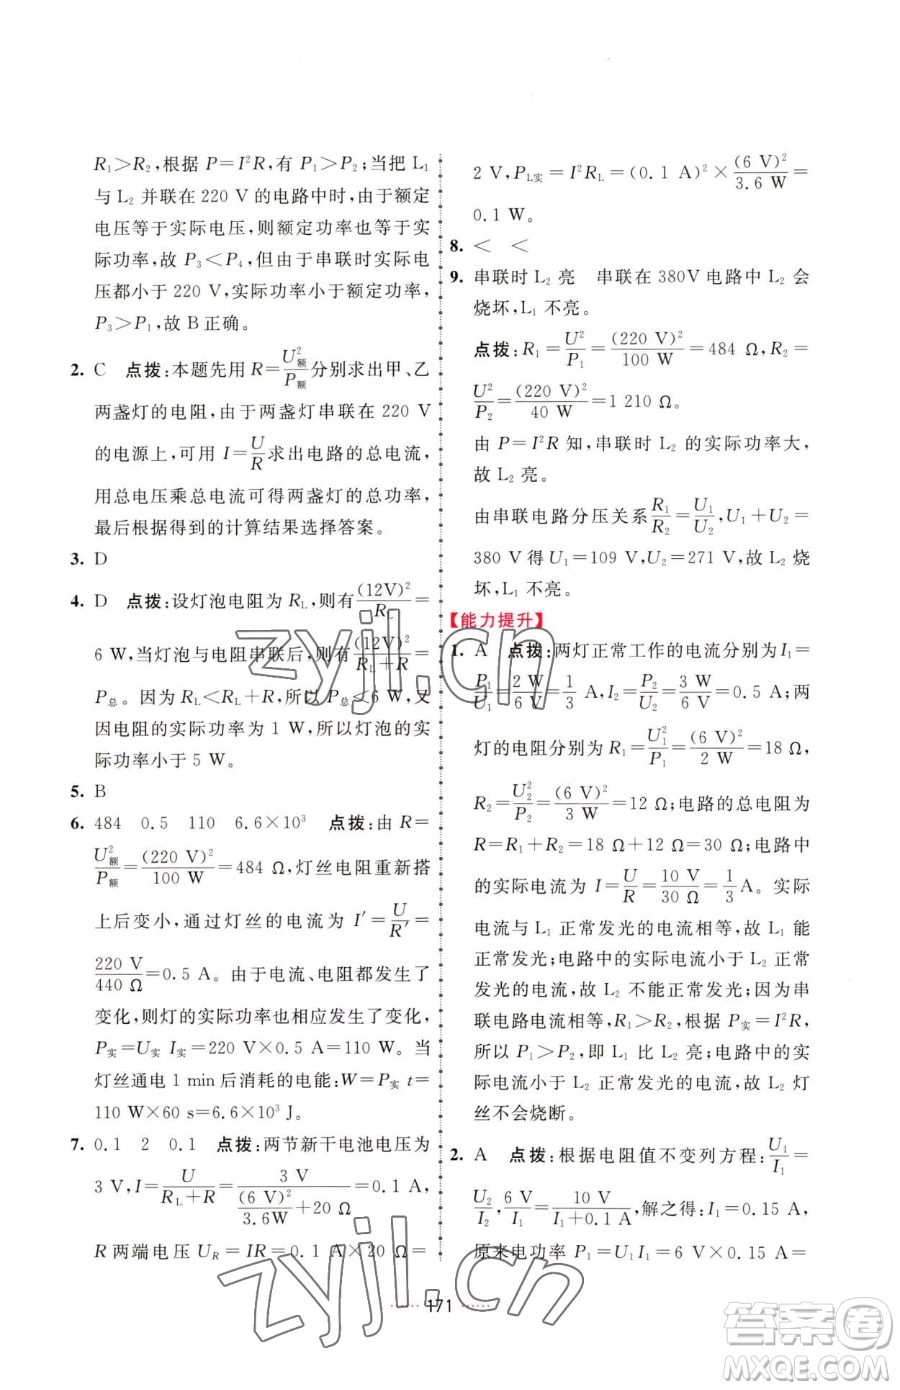 R₁>R₂,根据 P=I²R,有 P₁>P₂;当把 L₁
与 L₂ 并联在 220 V 的电路中时,由于额定
电压等于实际电压,则额定功率也等于实
际功率,故 P₃<P₄,但由于串联时实际电
压都小于 220 V,实际功率小于额定功率,
P₃>P₁,故 B 正确。
2. C 点拨:本题先用 R=U²额/P额分别求出甲、乙
两盏灯的电阻,由于两盏灯串联在 220 V
的电源上,可用 I=U/R求出电路的总电流,
用总电压乘总电流可得两盏灯的总功率,
最后根据得到的计算结果选择答案。
3. D
4. D 点拨:设灯泡电阻为 R_L,则有(12V)²/R_L=
6 W,当灯泡与电阻串联后,则有(12V)²/(R_L+R)=
P总。因为 R_L<R_L+R,所以 P总<6 W,又
因电阻的实际功率为 1 W,所以灯泡的实
际功率小于 5 W。
5. B
6. 484 0.5 110 6.6×10³ 点拨:由 R=
U²额/P额=(220 V)²/100 W=484 Ω,灯丝电阻重新搭
上后变小,通过灯丝的电流为 I′=U/R′=
220 V/440 Ω=0.5 A。由于电流、电阻都发生了
变化,则灯的实际功率也相应发生了变化,
P实=U实 I实=220 V×0.5 A=110 W。当
灯丝通电 1 min 后消耗的电能:W=P实 t=
110 W×60 s=6.6×10³ J。
7. 0.1 2 0.1 点拨:两节新干电池电压为
3 V,I=U/(R_L+R)=3 V/((6 V)²/3.6W+20 Ω)=0.1 A,
R 两端电压 U_R=IR=0.1 A×20 Ω=
2 V,P_L实=I²R_L=(0.1 A)²×(6 V)²/3.6 W=
0.1 W。
8. < <
9. 串联时 L₂ 亮 串联在 380V 电路中 L₂ 会
烧坏,L₁ 不亮。
点拨:R₁=U²/P₁=(220 V)²/100 W=484 Ω,R₂=
U²/P₂=(220 V)²/40 W=1 210 Ω。
由 P=I²R 知,串联时 L₂ 的实际功率大,
故 L₂ 亮。
由串联电路分压关系R₁/R₂=U₁/U₂,U₁+U₂=
380 V 得 U₁=109 V,U₂=271 V,故 L₂ 烧
坏,L₁ 不亮。
【能力提升】
1. A 点拨:两灯正常工作的电流分别为 I₁=
P₁/U₁=2 W/6 V=1/3 A,I₂=P₂/U₂=3 W/6 V=0.5 A;两
灯的电阻分别为 R₁=U₁²/P₁=(6 V)²/2 W=18 Ω,
R₂=U₂²/P₂=(6 V)²/3 W=12 Ω;电路的总电阻为
R=R₁+R₂=18 Ω+12 Ω=30 Ω;电路中
的实际电流为 I=U/R=10 V/30 Ω=1/3 A。实际
电流与 L₁ 正常发光的电流相等,故 L₁ 能
正常发光;电路中的实际电流小于 L₂ 正常
发光的电流,故 L₂ 不能正常发光;因为串
联电路电流相等,R₁>R₂,根据 P实=I²R,
所以 P₁>P₂,即 L₁ 比 L₂ 亮;电路中的实
际电流小于 L₂ 正常发光的电流,故 L₂ 灯
丝不会烧断。
2. A 点拨:根据电阻值不变列方程:U₁/I₁=
U₂/I₂,6 V/I₁=10 V/(I₁+0.1 A),解之得:I₁=0.15 A,
原来电功率 P₁=U₁I₁=6 V×0.15 A=
171
zyjl.cn
zyjl.cn
答案圈
MXQE.COM